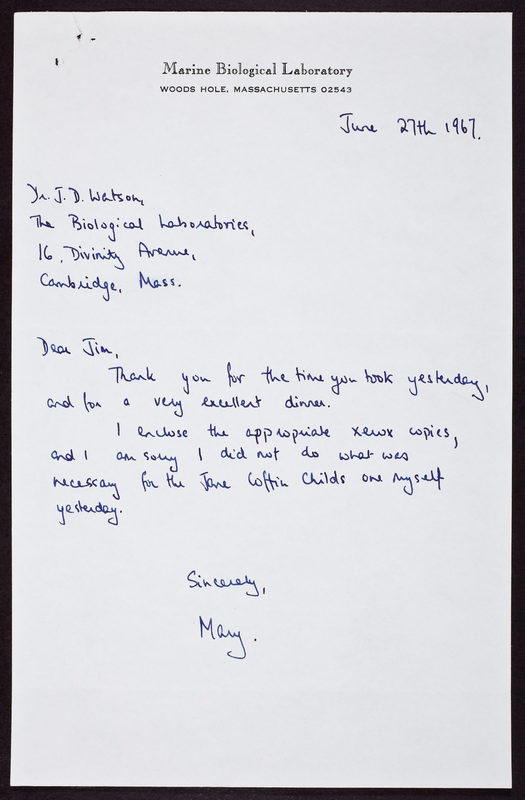 Marine Biological Laboratory
WOODS HOLE, MASSACHUSETTS 02543
June 27th 1967.
Dr. J. D. Watson,
The Biological Laboratories,
16, Divinity Avenue,
Cambridge, Mass.
Dear Jim,
Thank you for the time you took yesterday,
and for a very excellent dinner.
I enclose the appropriate xerox copies,
and I am sorry I did not do what was
necessary for the Jane Coffin Childs one myself
yesterday.
Sincerely,
Mary.